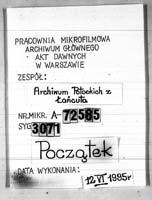 PRACOWNIA MIKROFILMOWA
ARCHIWUM GŁÓWNEGO
AKT DAWNYCH
W WARSZAWIE
ZESPÓŁ:
Archiwum Potockich z
Łańcuta
NR.MIKR. A- 72585
SYG 3071
Początek
DATA WYKONANIA:
12 VI 1995 r